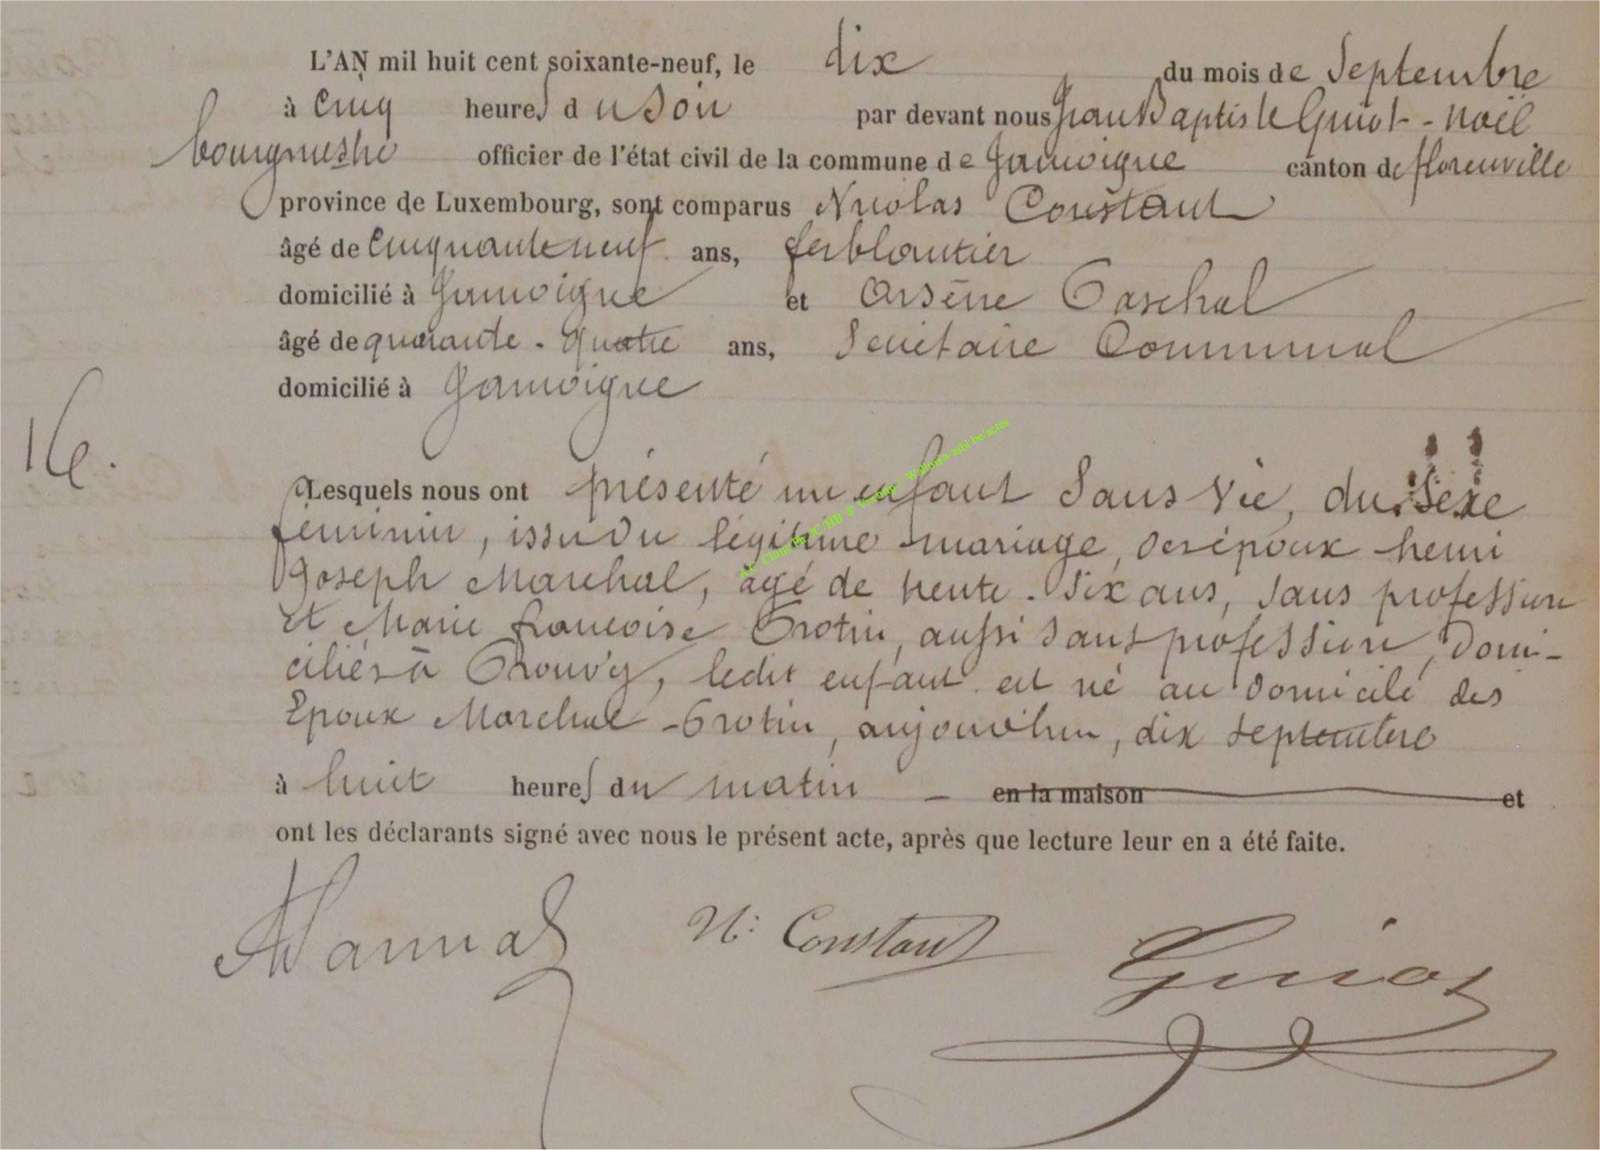 L'AN mil huit cent soixante-neuf, le dix du mois de Septembre
à cinq heures du Soir par devant nous Jean Baptiste Guiot-Noël
bourgmestre officier de l'état civil de la commune de Jamoigne canton de florenville
province de Luxembourg, sont comparus Nicolas Constant
âgé de Cinquante neuf ans, ferblantier
domicilié à Jamoigne et Arsène Paschal
âgé de quarante-quatre ans, Secrétaire Communal
domicilié à Jamoigne
16.
Lesquels nous ont présenté un enfant Sans Vie, du Sexe
féminin, issu du légitime mariage, des époux henri
Joseph Marchal, âgé de trente-six ans, sans profession
et Marie françoise Protin, aussi sans profession, domi-
ciliés à Prouvy, ledit enfant est né au domicile des
Epoux Marchal-Protin, aujourd'hui, dix septembre
à huit heures du matin en la maison et
ont les déclarants signé avec nous le présent acte, après que lecture leur en a été faite.
N: Constant Guiot